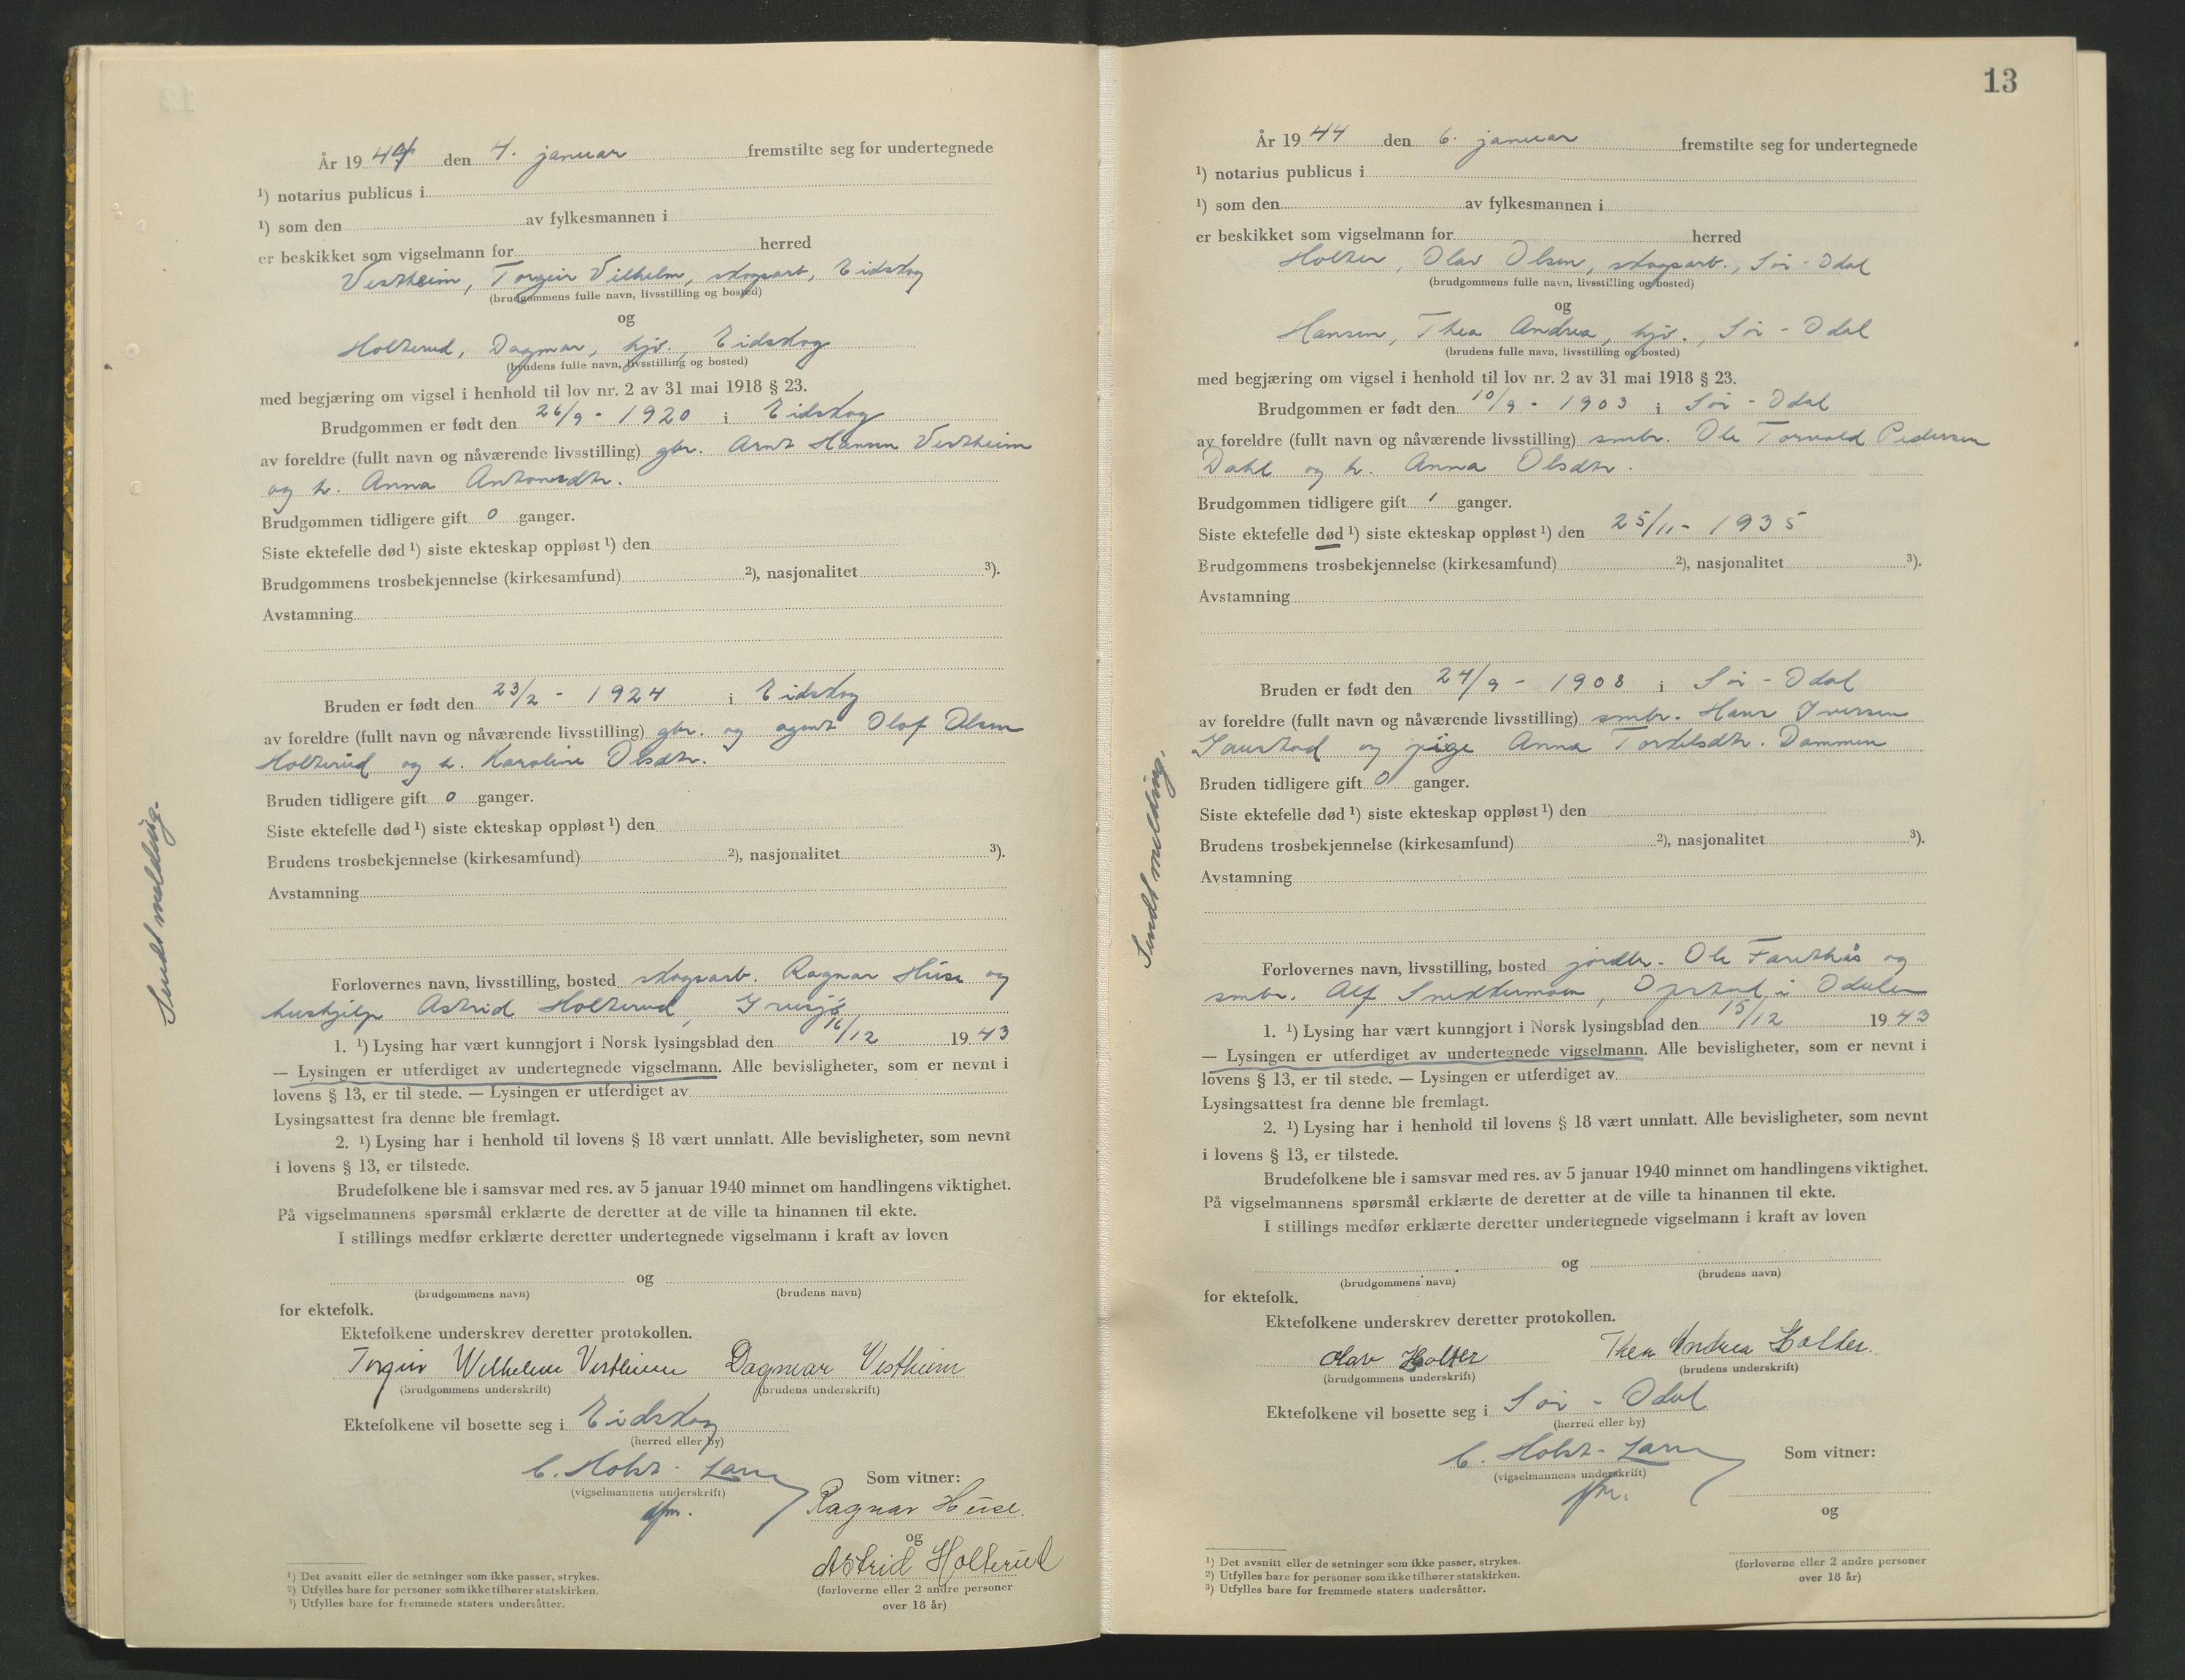 År 19 44 den 4. januar fremstilte seg for undertegnede
¹) notarius publicus i
¹) som den av fylkesmannen i
er beskikket som vigselmann for herred
Vestheim, Torgeir Vilhelm, skogsarb, Eidskog
(brudgommens fulle navn, livsstilling og bosted)
og
Holterud, Dagmar, hjv., Eidskog
(brudens fulle navn, livsstilling og bosted)
med begjæring om vigsel i henhold til lov nr. 2 av 31 mai 1918 § 23.
Brudgommen er født den 26/9 - 1920 i Eidskog
av foreldre (fullt navn og nåværende livsstilling) gbr. Arnt Hansen Vestheim
og h. Anna Antonsdtr.
Brudgommen tidligere gift 0 ganger.
Siste ektefelle død ¹) siste ekteskap oppløst ¹) den
Brudgommens trosbekjennelse (kirkesamfund) ²), nasjonalitet ³).
Avstamning
Bruden er født den 23/2 - 1924 i Eidskog
av foreldre (fullt navn og nåværende livsstilling) gbr. og agent Olof Olsen
Holterud og h. Karoline Olsdtr.
Bruden tidligere gift 0 ganger.
Siste ektefelle død ¹) siste ekteskap oppløst ¹) den
Brudens trosbekjennelse (kirkesamfund) ²), nasjonalitet ³).
Avstamning
Sendt melding.
Forlovernes navn, livsstilling, bosted skogsarb. Ragnar Huse og
hushjelp Astrid Holterud,
1. ¹) Lysing har vært kunngjort i Norsk lysingsblad den 16/12 19 43
— Lysingen er utferdiget av undertegnede vigselmann. Alle bevisligheter, som er nevnt i
lovens § 13, er til stede. — Lysingen er utferdiget av
Lysingsattest fra denne ble fremlagt.
2. ¹) Lysing har i henhold til lovens § 18 vært unnlatt. Alle bevisligheter, som nevnt
i lovens § 13, er tilstede.
Brudefolkene ble i samsvar med res. av 5 januar 1940 minnet om handlingens viktighet.
På vigselmannens spørsmål erklærte de deretter at de ville ta hinannen til ekte.
I stillings medfør erklærte deretter undertegnede vigselmann i kraft av loven
og
(brudgommens navn) (brudens navn)
for ektefolk.
Ektefolkene underskrev deretter protokollen.
Torgeir Wilhelm Vestheim Dagmar Vestheim
(brudgommens underskrift) (brudens underskrift)
Ektefolkene vil bosette seg i Eidskog
(herred eller by)
C. Holst- Som vitner:
(vigselmannens underskrift)
Ragnar Huse.
og
Astrid Holterud
(forloverne eller 2 andre personer
over 18 år)
¹) Det avsnitt eller de setninger som ikke passer, strykes.
²) Utfylles bare for personer som ikke tilhører statskirken.
³) Utfylles bare for fremmede staters undersåtter.
13
År 19 44 den 6. januar fremstilte seg for undertegnede
¹) notarius publicus i
¹) som den av fylkesmannen i
er beskikket som vigselmann for herred
Holter, Olav Olsen, skogsarb., Sør - Odal
(brudgommens fulle navn, livsstilling og bosted)
og
Hansen, Thea Andrea, hjv., Sør - Odal
(brudens fulle navn, livsstilling og bosted)
med begjæring om vigsel i henhold til lov nr. 2 av 31 mai 1918 § 23.
Brudgommen er født den 10/9 - 1903 i Sør - Odal
av foreldre (fullt navn og nåværende livsstilling) smbr. Ole Torvald Pedersen
Dahl og h. Anna Olsdtr.
Brudgommen tidligere gift 1 ganger.
Siste ektefelle død ¹) siste ekteskap oppløst ¹) den 25/11 - 1935
Brudgommens trosbekjennelse (kirkesamfund) ²), nasjonalitet ³).
Avstamning
Bruden er født den 24/9 - 1908 i Sør - Odal
av foreldre (fullt navn og nåværende livsstilling) smbr. Hans Iversen
og pige Anna Torkelsdtr. Dammen
Bruden tidligere gift 0 ganger.
Siste ektefelle død ¹) siste ekteskap oppløst ¹) den
Brudens trosbekjennelse (kirkesamfund) ²), nasjonalitet ³).
Avstamning
Sendt melding.
Forlovernes navn, livsstilling, bosted jordbr. Ole og
smbr. Alf i Odalen
1. ¹) Lysing har vært kunngjort i Norsk lysingsblad den 15/12 19 43
— Lysingen er utferdiget av undertegnede vigselmann. Alle bevisligheter, som er nevnt i
lovens § 13, er til stede. — Lysingen er utferdiget av
Lysingsattest fra denne ble fremlagt.
2. ¹) Lysing har i henhold til lovens § 18 vært unnlatt. Alle bevisligheter, som nevnt
i lovens § 13, er tilstede.
Brudefolkene ble i samsvar med res. av 5 januar 1940 minnet om handlingens viktighet.
På vigselmannens spørsmål erklærte de deretter at de ville ta hinannen til ekte.
I stillings medfør erklærte deretter undertegnede vigselmann i kraft av loven
og
(brudgommens navn) (brudens navn)
for ektefolk.
Ektefolkene underskrev deretter protokollen.
Olav Holter Thea Andrea Holter.
(brudgommens underskrift) (brudens underskrift)
Ektefolkene vil bosette seg i Sør - Odal
(herred eller by)
C. Holst- Som vitner:
(vigselmannens underskrift)
og
(forloverne eller 2 andre personer
over 18 år)
¹) Det avsnitt eller de setninger som ikke passer, strykes.
²) Utfylles bare for personer som ikke tilhører statskirken.
³) Utfylles bare for fremmede staters undersåtter.